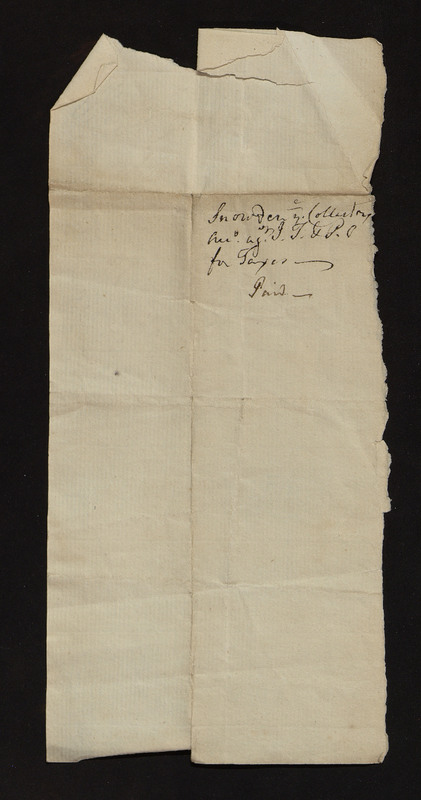 Snowden, ye. Collectors
Acct. agst. J. T. & P. C
for Taxes —
Paid —